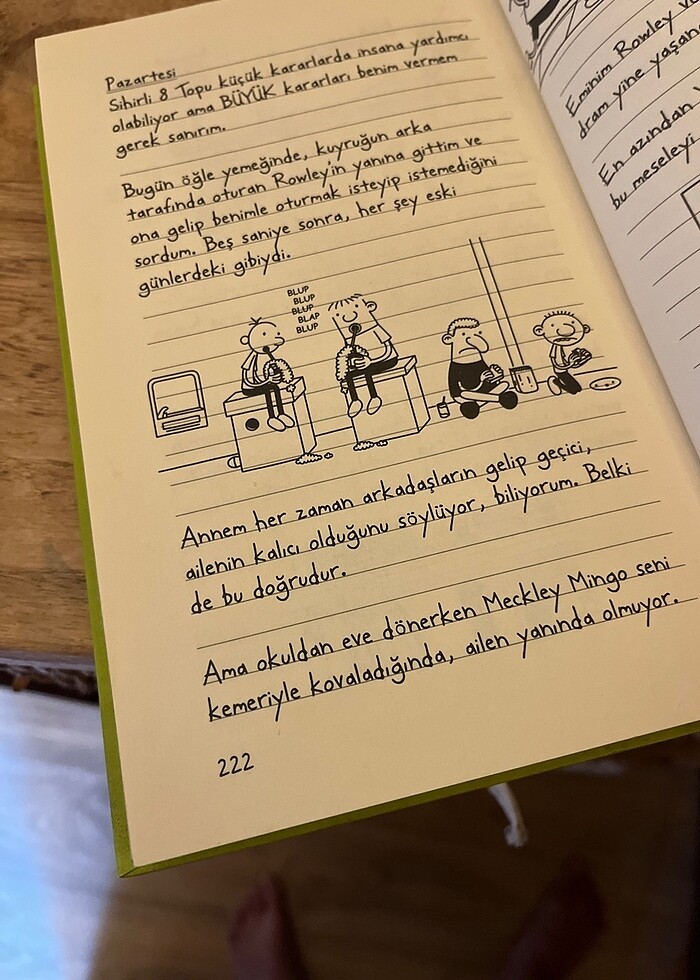 Pazartesi
Sihirli 8 Topu küçük kararlarda insana yardımcı
olabiliyor ama BÜYÜK kararları benim vermem
gerek sanırım.
Bugün öğle yemeğinde, kuyruğun arka
tarafında oturan Rowley'in yanına gittim ve
ona gelip benimle oturmak isteyip istemediğini
sordum. Beş saniye sonra, her şey eski
günlerdeki gibiydi.
BLUP
BLUP
BLUP
BLAP
BLUP
Annem her zaman arkadaşların gelip geçici,
ailenin kalıcı olduğunu söylüyor, biliyorum. Belki
de bu doğrudur.
Ama okuldan eve dönerken Meckley Mingo seni
kemeriyle kovaladığında, ailen yanında olmuyor.
222
Eminim Rowley
dram yine
En azından
bu meseleyi